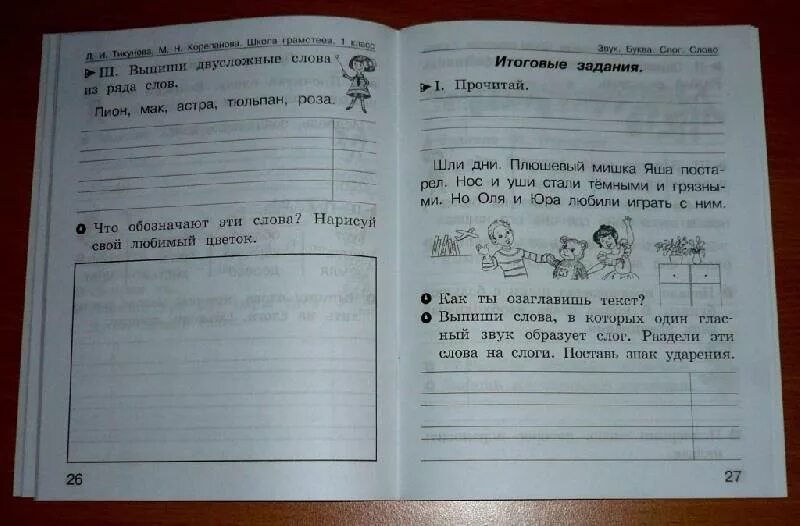 Л. И. Тикунова, М. Н. Корепанова. Школа грамотеев. 1 класс
III. Выпиши двусложные слова
из ряда слов.
Пион, мак, астра, тюльпан, роза.
Что обозначают эти слова? Нарисуй
свой любимый цветок.
26
Звук. Буква. Слог. Слово
Итоговые задания.
I. Прочитай.
Шли дни. Плюшевый мишка Яша поста-
рел. Нос и уши стали тёмными и грязны-
ми. Но Оля и Юра любили играть с ним.
Как ты озаглавишь текст?
Выпиши слова, в которых один глас-
ный звук образует слог. Раздели эти
слова на слоги. Поставь знак ударения.
27